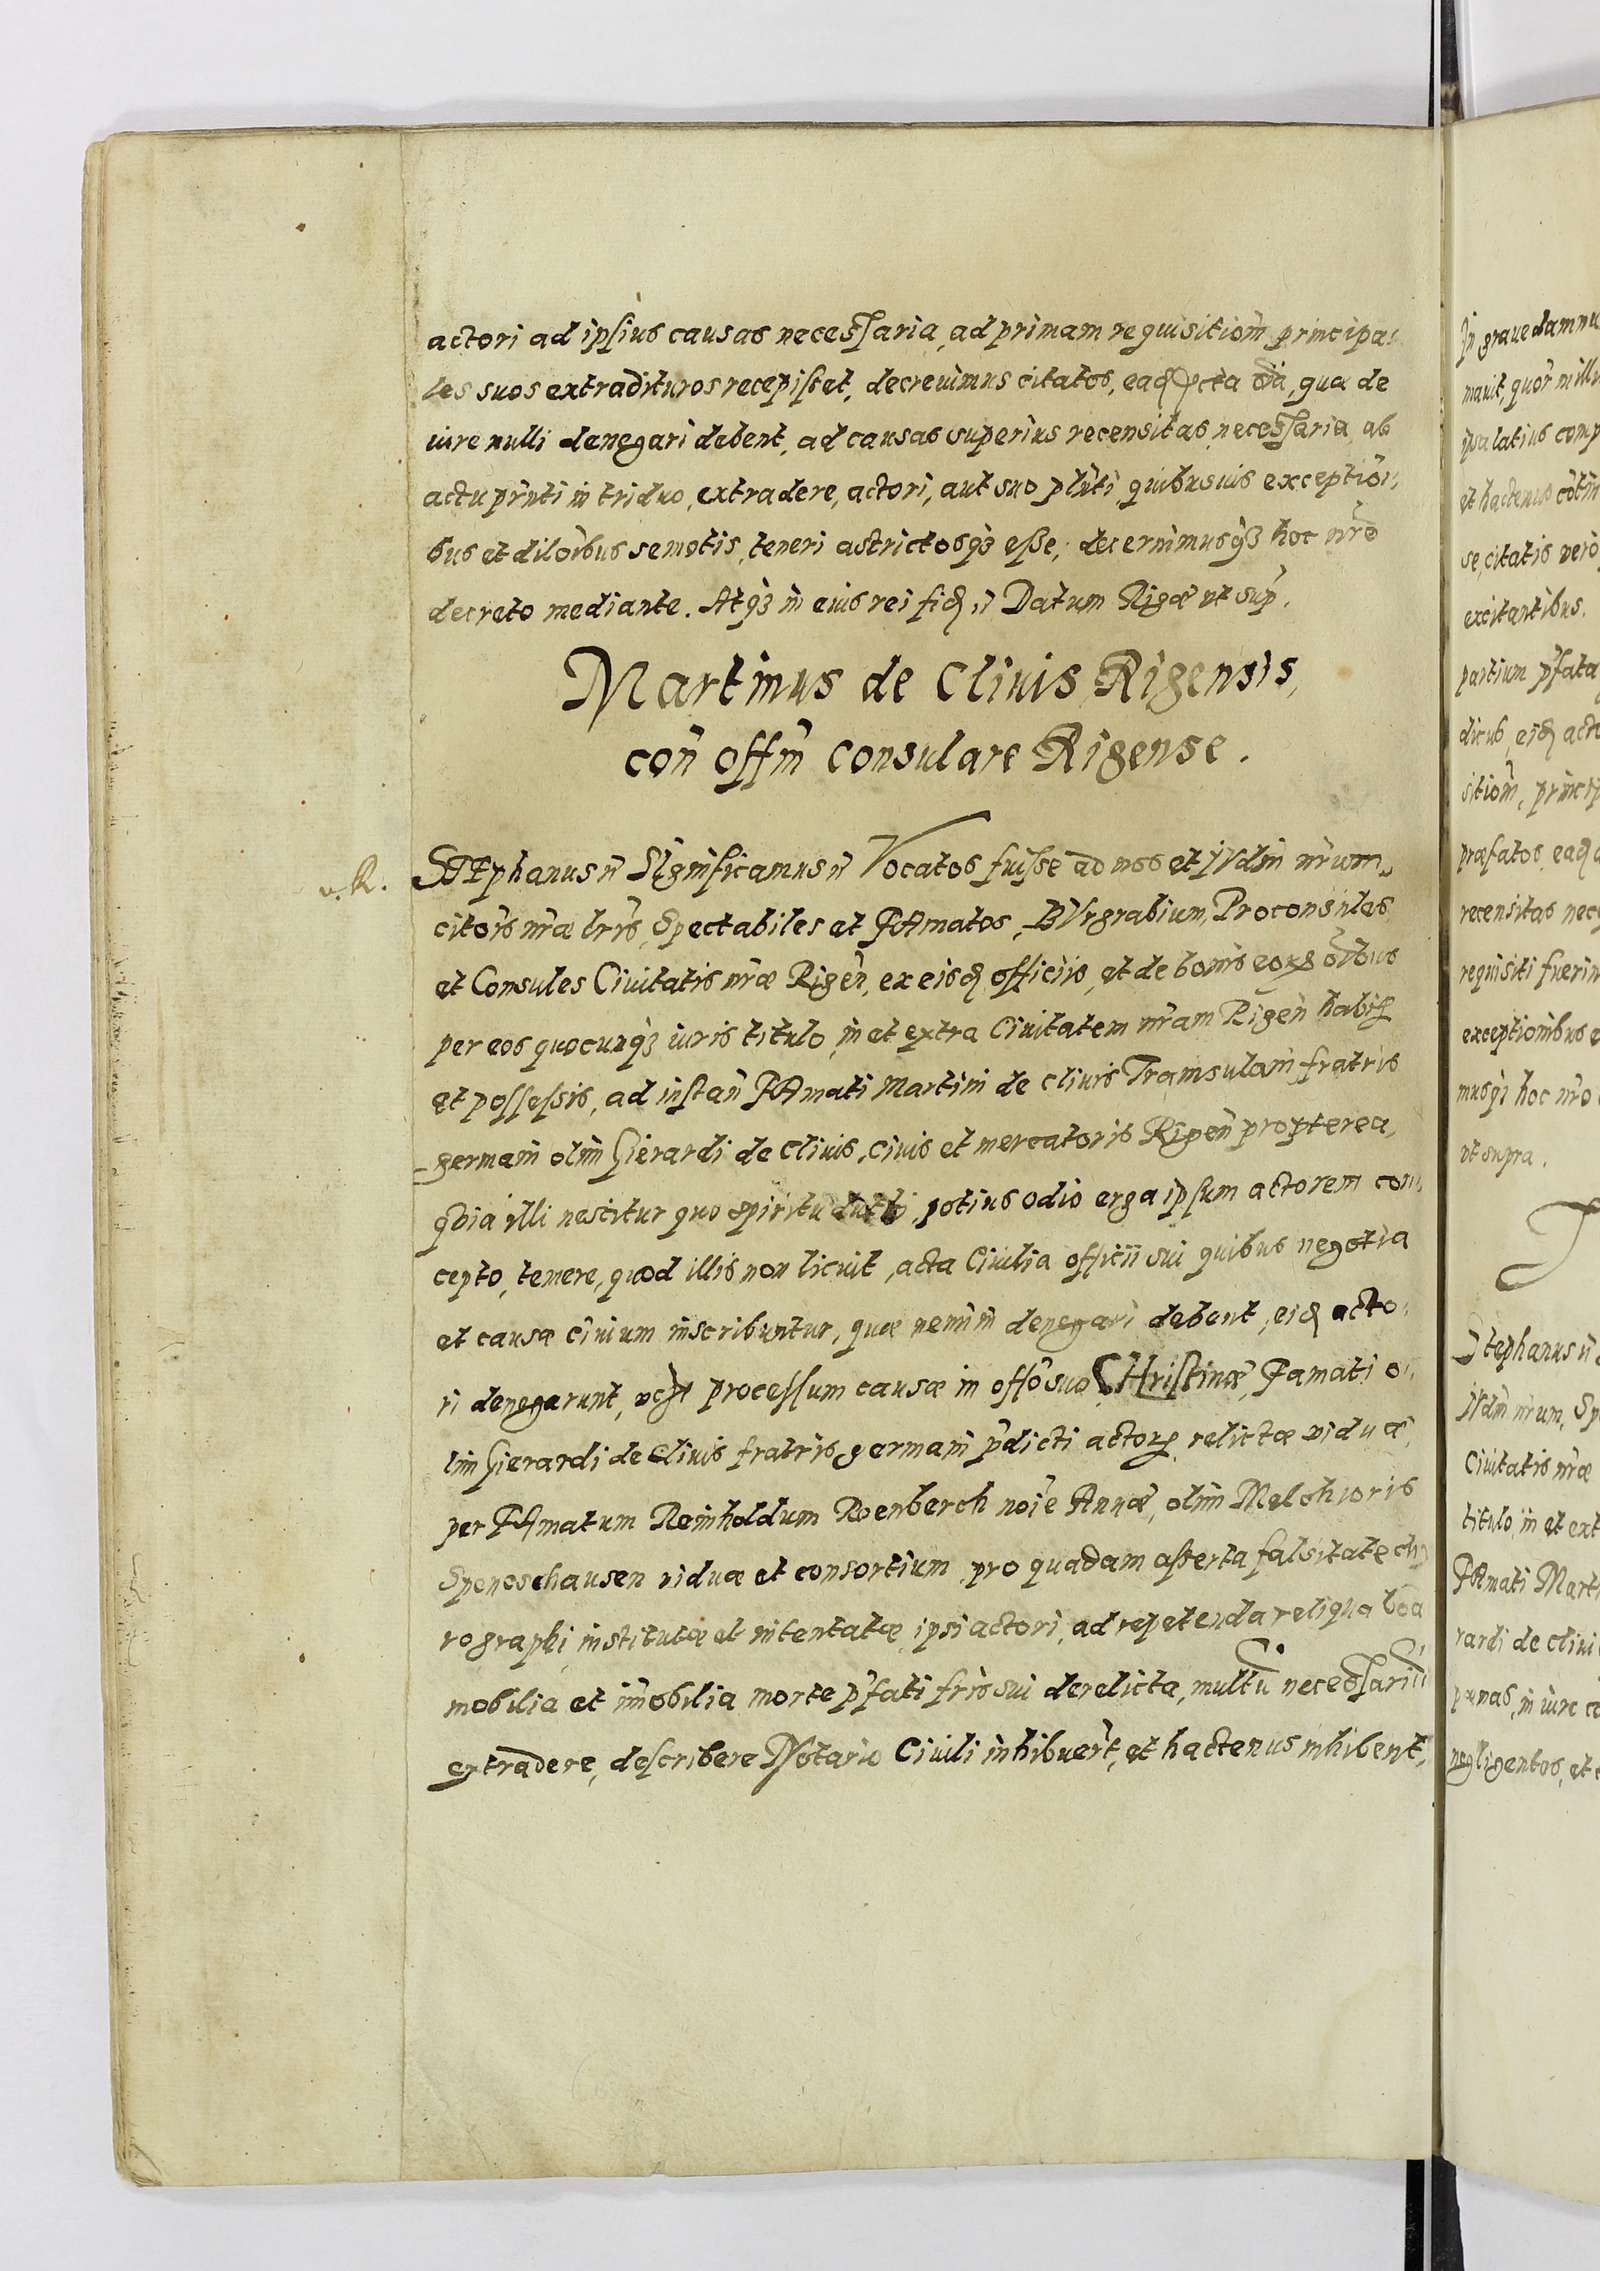 actori ad ipsius causas necessaria, ad primam requisitiom̄ principa-
les suos extradituros recepisset, decreuimus citatos, eaq́ acta oīa, quæ de
iure nulli denegari debent, ad causas superius recensitas necessaria, ab
actu prn̄ti in triduo, extradere, actori, aut suo pln̄ti, quibusuis exceptioī,
bus et dilōibus semotis, teneri astrictosq́ȝ esse, decernimusq́ȝ hoc nr̄o
decreto mediante. Atq́ȝ in eius rei fiđ ꝝ Datum Rigæ vt sup̄.
Martinus de Cliuis Rigensis,
con̄ offm̄ Consulare Rigense.
v. R.
STEphanus ꝝ Significamus ꝝ Vocatos fuisse ad nos et IVdm̄ nr̄um,
citōis nr̄æ lrīs, Spectabiles et FAmatos, BVrgrabium, Proconsules
et Consules Ciuitatis nr̄æ Rigen̄, ex eisđ officiis, et de bonis eoꝝ oīƀus
per eos quocunq́ȝ iuris titulo, in et extra Ciuitatem nr̄am Rigen̄ habiꝭ
et possessis, ad instan̄ FAmati Martini de cliuis Transulan̄ fratris
germani olim Gierardi de Cliuis, ciuis et mercatoris Rigen̄ propterea,
qđia illi nescitur quo spiritu ducti, potius odio erga ipsum actorem con,
cepto, temere, quod illis non licuit, acta Ciuilia officii sui quibus negotia
et causæ ciuium inscribuntur, quæ nemini denegari debent, eiđ acto-
ri denegarunt, processum causæ in offō suo, CHristinæ, Famati o-
lim Gierardi de Cliuis fratris germani p̄dicti actorꝭ relictæ viduæ,
per FAmatum Reinholdum Roenberch noīe Annæ, olim Melchioris
Sponeschausen viduæ et consortium, pro quadam asserta falsitate chy
rographi, institutæ et intentatæ ipsi actori, ad repetenda reliqua boā
mobilia et im̄obilia morte p̄fati fr̄is sui derelicta, multū necessariū
extradere, describere Notario Ciuili inhibuer̄t, et hactenus inhibent,
In graue damnu
mauit, quor̄m illu
ipsa latius comp
et hactenus
se, citatis vero
excitantibus.
partium p̄fata
dicus, eiđ acto
sitiom̄, princip
præfatos, eaq́
recensitas nece
requisiti fuerin
exceptionibus e
musq́ȝ hoc nr̄o
vt supra.
Stephanus ꝝ
IVdm̄ nr̄um, Sp
Ciuitatis nr̄æ
titulo, in et ext
FAmati Marti
rardi de cliui
pœnas, in iure
negligentes, et